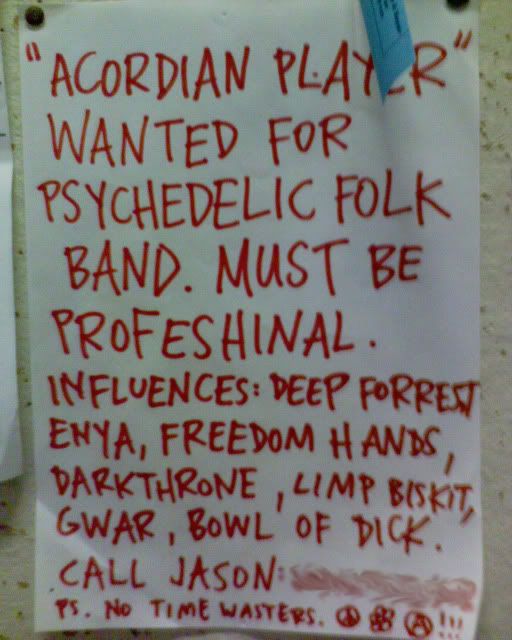 "ACORDIAN PLAYER"
WANTED FOR
PSYCHEDELIC FOLK
BAND. MUST BE
PROFESHINAL.
INFLUENCES: DEEP FORREST
ENYA, FREEDOM HANDS,
DARKTHRONE, LIMP BISKIT,
GWAR, BOWL OF DICK.
CALL JASON:
PS. NO TIME WASTERS. !!!